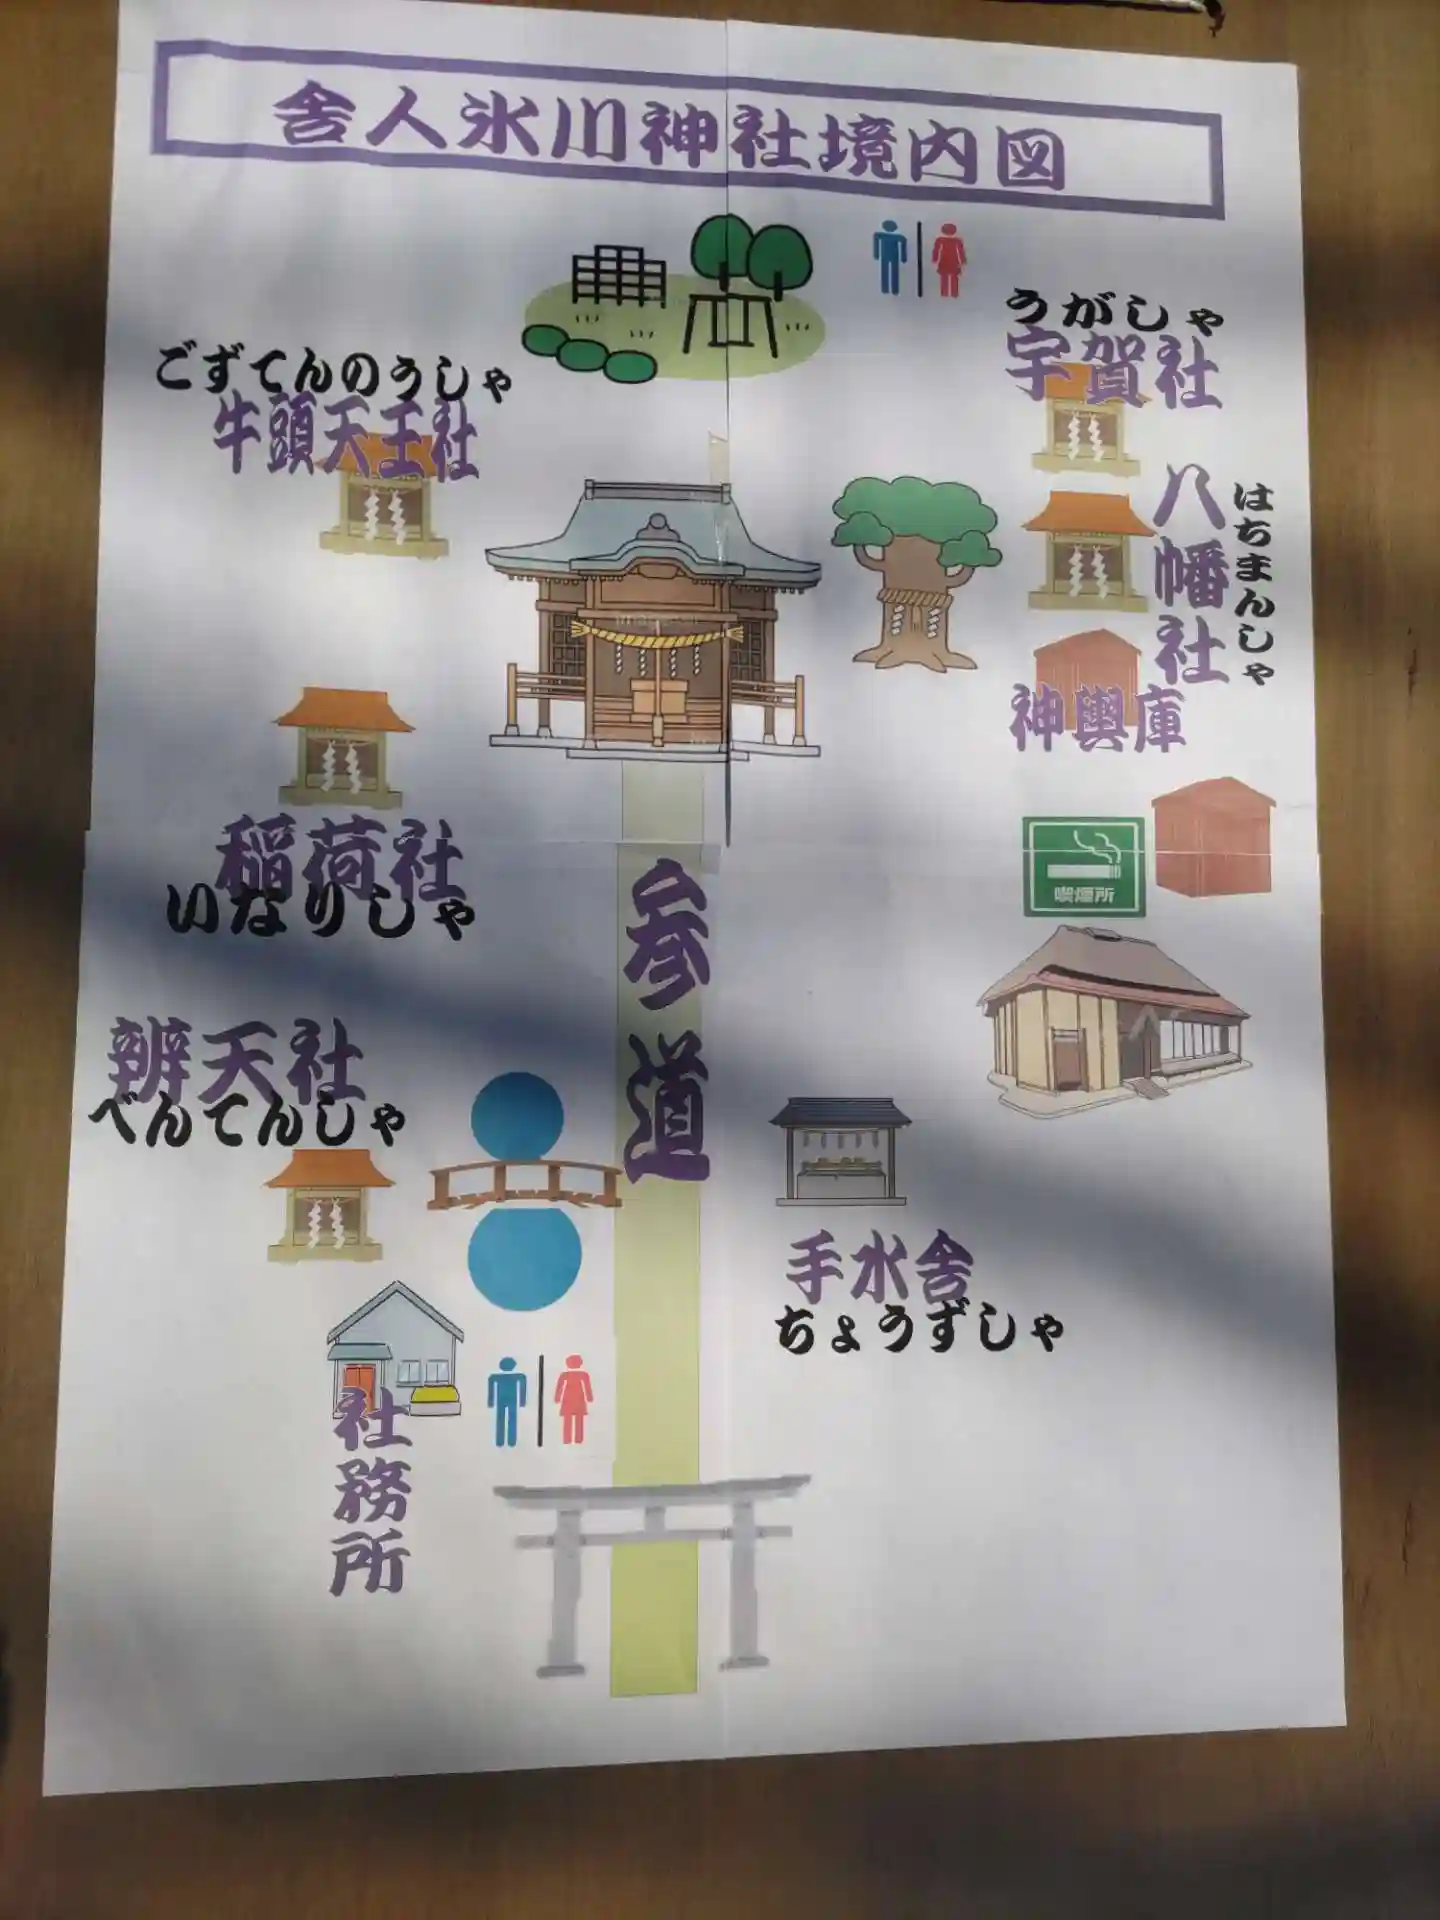 舎人氷川神社境内図
うがしゃ
宇賀社
ごずてんのうしゃ
牛頭天王社
八幡社
はちまんしゃ
神輿庫
稲荷社
いなりしゃ
喫煙所
参道
辨天社
べんてんしゃ
手水舎
ちょうずしゃ
社務所